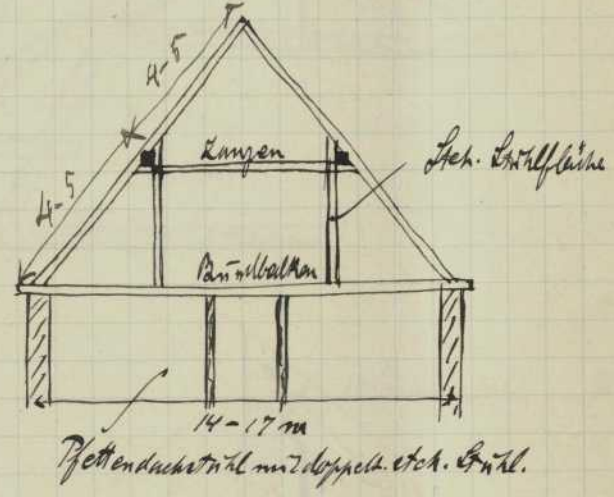 4-5
4-5
Zangen
Steh. Stuhlsäule
Bundbalken
14-17 m
Pfettendachstuhl mit doppelt. steh. Stuhl.